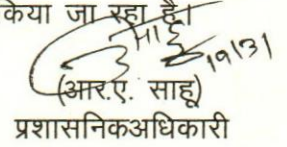 किया जा रहा है।
साहू
19/3/
(आर.ए. साहू)
प्रशासनिकअधिकारी